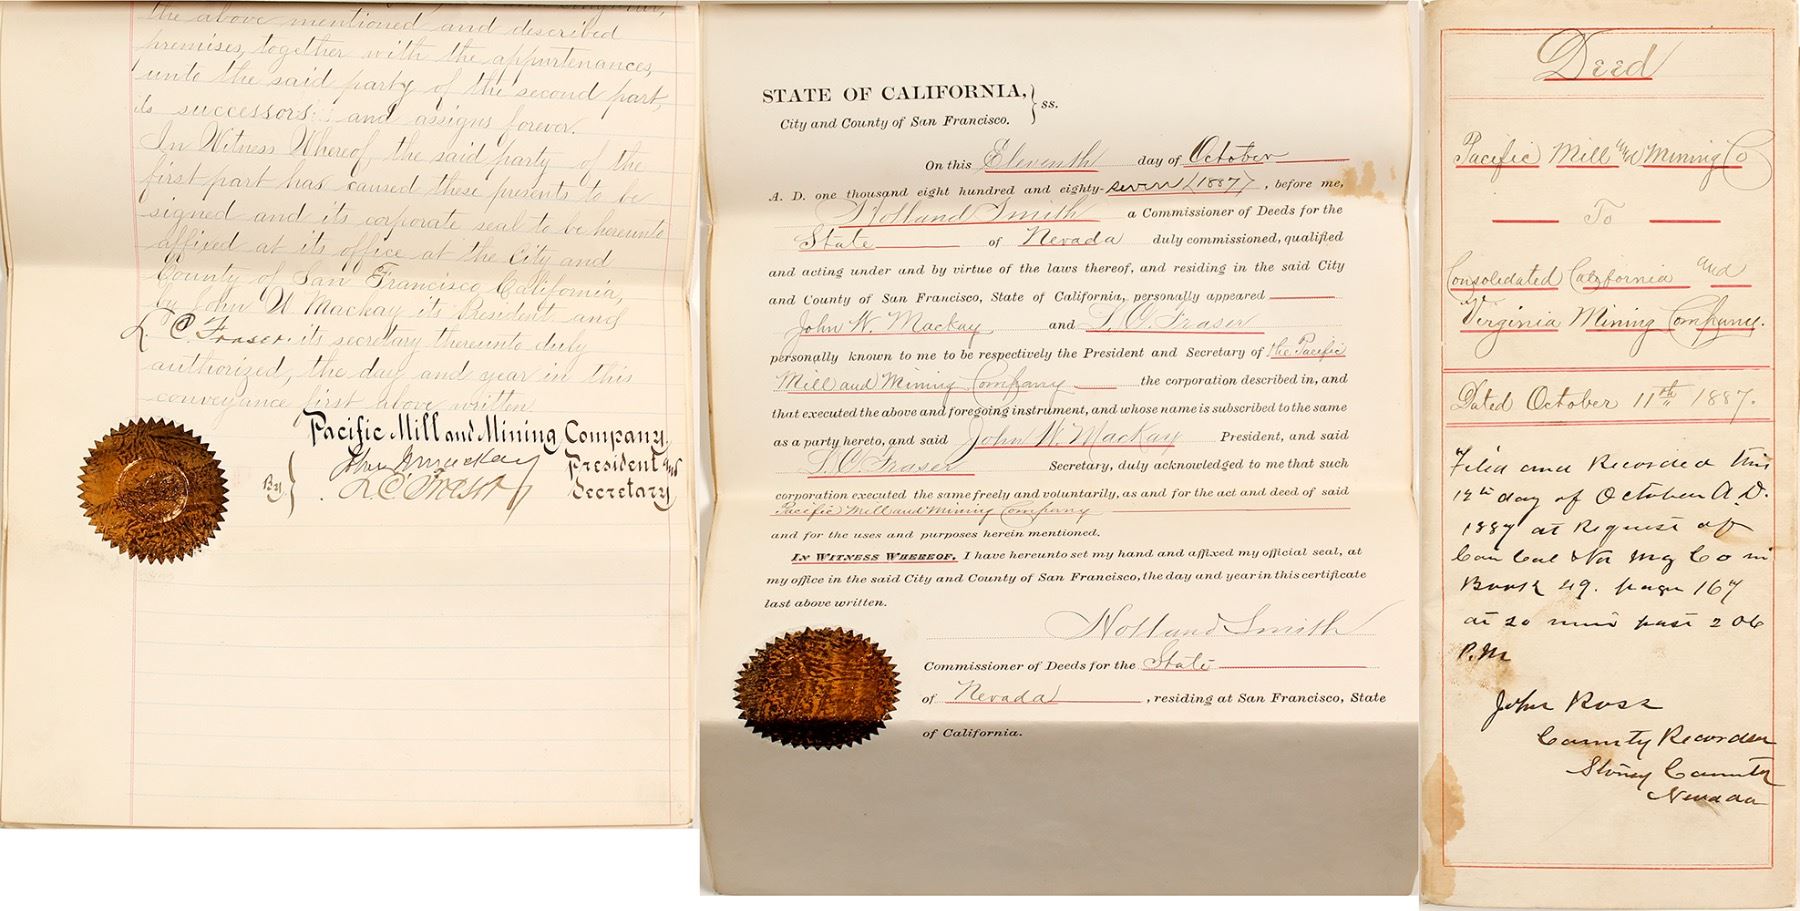 the above mentioned and described
premises, together with the appurtenances,
unto the said party of the second part,
its successors and assigns forever.
In Witness Whereof, the said party of the
first part has caused these presents to be
signed and its corporate seal to be hereunto
affixed at its office at the City and
County of San Francisco, California,
by John W Mackay its President and
L. C. Fraser its secretary thereunto duly
authorized, the day and year in this
conveyance first above written.
Pacific Mill and Mining Company.
By John W Mackay President and
L C Fraser Secretary
STATE OF CALIFORNIA, } ss.
City and County of San Francisco.
On this Eleventh day of October
A. D. one thousand eight hundred and eighty-seven (1887), before me,
Holland Smith a Commissioner of Deeds for the
State of Nevada duly commissioned, qualified
and acting under and by virtue of the laws thereof, and residing in the said City
and County of San Francisco, State of California, personally appeared
John W. Mackay and L. C. Fraser
personally known to me to be respectively the President and Secretary of the Pacific
Mill and Mining Company the corporation described in, and
that executed the above and foregoing instrument, and whose name is subscribed to the same
as a party hereto, and said John W. Mackay President, and said
L. C. Fraser Secretary, duly acknowledged to me that such
corporation executed the same freely and voluntarily, as and for the act and deed of said
Pacific Mill and Mining Company
and for the uses and purposes herein mentioned.
IN WITNESS WHEREOF, I have hereunto set my hand and affixed my official seal, at
my office in the said City and County of San Francisco, the day and year in this certificate
last above written.
Holland Smith
Commissioner of Deeds for the State
of Nevada, residing at San Francisco, State
of California.
Deed
Pacific Mill and Mining Co
To
Consolidated California and
Virginia Mining Company.
Dated October 11th 1887.
Filed and Recorded this
12th day of October A.D.
1887 at Request of
Con Cal & Va Mg Co in
Book 49. page 167
at 20 min past 2 O'c
P.M
John Ross
County Recorder
Storey County
Nevada